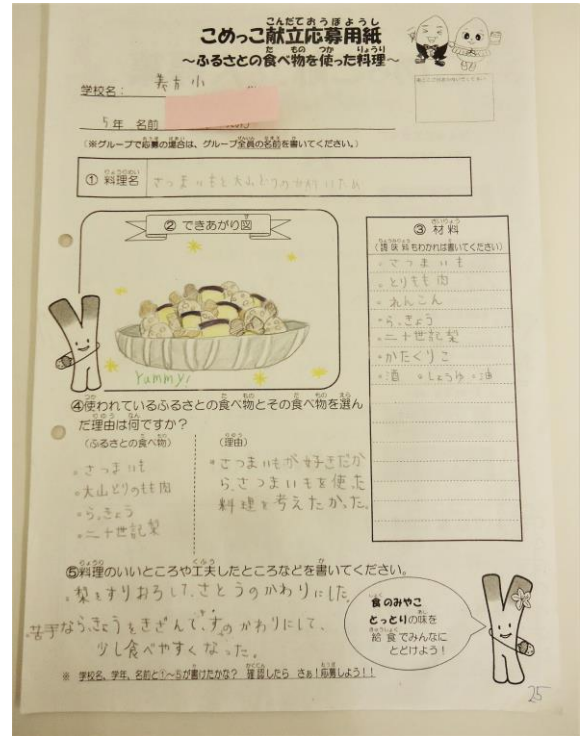 こめっこ献立応募用紙
こんだておうぼようし
～ふるさとの食べ物を使った料理～
た もの つか りょうり
学校名：
5年 名前
(※グループで応募の場合は、グループ全員の名前を書いてください。)
① 料理名 さつまいもと大山どりの
② できあがり図
Yummy!
③ 材料
(調味料もわかれば書いてください)
・さつまいも
・とりもも肉
・れんこん
・らっきょう
・二十世紀梨
・かたくりこ
・酒 ・しょうゆ ・油
④使われているふるさとの食べ物とその食べ物を選ん
だ理由は何ですか？
(ふるさとの食べ物)
・さつまいも
・大山どりのもも肉
・らっきょう
・二十世紀梨
(理由)
・さつまいもが好きだか
ら、さつまいもを使った
料理を考えたかった。
⑤料理のいいところや工夫したところなどを書いてください。
・梨をすりおろして、さとうのかわりにした。
・苦手ならっきょうをきざんで、すのかわりにして、
少し食べやすくなった。
食のみやこ
とっとりの味を
給食でみんなに
とどけよう！
※ 学校名、学年、名前と①～⑤が書けたかな？ 確認したら さぁ！応募しよう！！
25